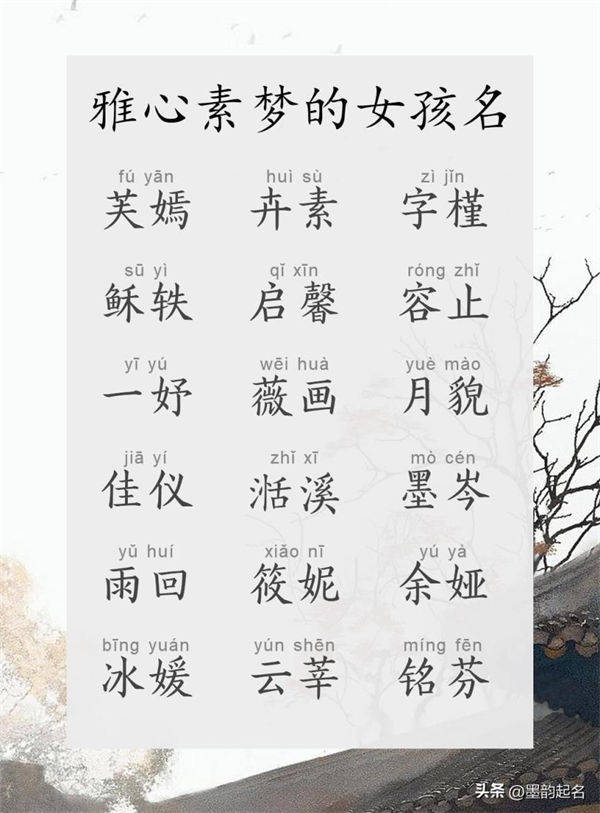 雅心素梦的女孩名
fú yān huì sù zì jǐn
芙嫣 卉素 字槿
sū yì qǐ xīn róng zhǐ
稣轶 启馨 容止
yī yú wēi huà yuè mào
一妤 薇画 月貌
jiā yí zhǐ xī mò cén
佳仪 湉溪 墨岑
yǔ huí xiǎo nī yú yà
雨回 筱妮 余娅
bīng yuán yún shēn míng fēn
冰媛 云莘 铭芬
头条 @墨韵起名